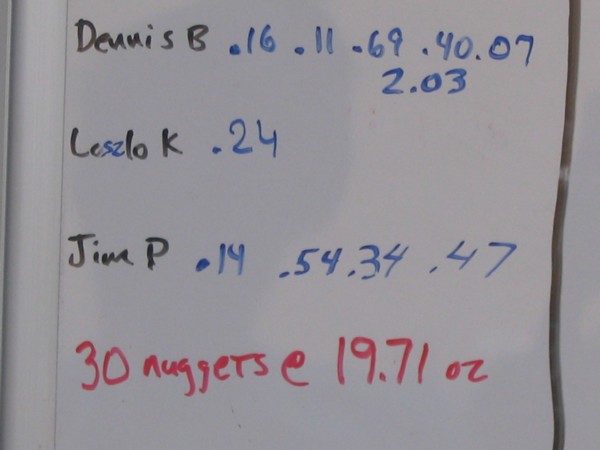 Dennis B .16 .11 .69 .40 .07
2.03
Leszlo K .24
Jim P .14 .54 .34 .47
30 nuggets @ 19.71 oz